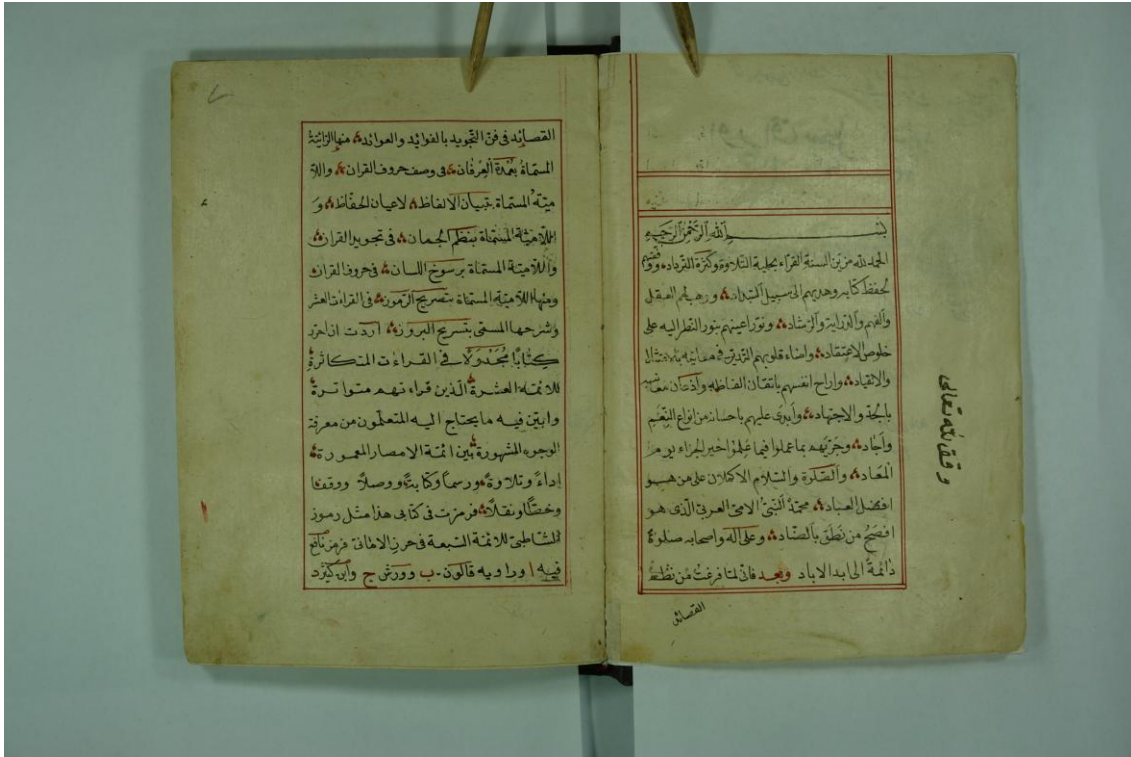 بسم الله الرحمن الرحيم
الحمد لله مزين السنة القراء بحلية التلاوة وكثرة الترداد ووفقهم
لحفظ كتابه وهديهم الى سبيل السداد ورهم العقل
والفهم والدراية والرشاد ونور اعينهم بنور النظر اليه على
خلوص الاعتقاد واضاء قلوبهم التدبر في معانيه بالامتثال
والانقياد واراح انفسهم باتقان الفاظه واذعان معانيه
بالجد والاجتهاد وأبدى عليهم باحسانه من انواع النعم
وأجاد وجزيهم بما عملوا فيما علموا خير الجزاء يوم
المعاد والصلوة والسلام الاكملان على من هو
افضل العباد محمد النبى الامى العربى الذى هو
افصح من نطق بالضاد وعلى آله واصحابه صلوة
دائمة الى ابد الاباد وبعد فانى لما فرغت من نظم
القصائد
وقف لله تعالى
القصائد فى فن التجويد بالفوائد والعوائد منها الرائية
المسماة بعمدة العرفان فى وصف حروف القران واللا
مية المسماة بتبيان الالفاظ لاعيان الحفاظ و
اللامية المسماة بنظم الجمان فى تجويد القران
واللامية المسماة برسوخ اللسان فى حروف القران
ومنها اللامية المسماة بتصريح الرموز فى القراءات العشر
وشرحها المسمى بتسريح البروز اردت ان احرر
كتابا مجدولا فى القراءت المتكاثرة
للائمة العشرة الذين قراءتهم متواترة
وابين فيه ما يحتاج اليه المتعلمون من معرفة
الوجوه المشهورة بين ائمة الامصار المعمورة
اداءً وتلاوة ورسما وكتابة ووصلا ووقفا
وخطا ونقلا فرمزت فى كتابى هذا مثل رموز
الشاطبى للائمة السبعة فى حرز الامانى فرمز نافع
فيه ا وراويه قالون ب وورش ج وابن كثير د